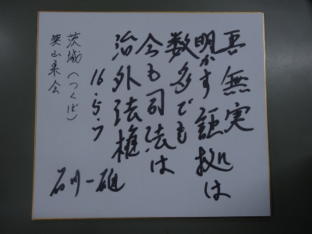 吾無実
明かす証拠は
数多でも
今も司法は
治外法権
16.5.7
石川一雄
茨城(つくば)